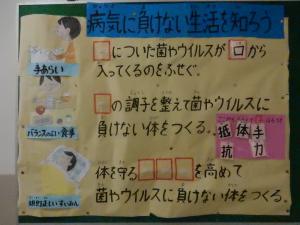 病気に負けない生活を知ろう
手あらい
□についた菌やウイルスが口から
入ってくるのをふせぐ。
バランスのよい食事
□の調子を整えて菌やウイルスに
負けない体をつくる。
抵体手
抗力
規則正しいすいみん
体を守る□□□を高めて
菌やウイルスに負けない体をつくる。